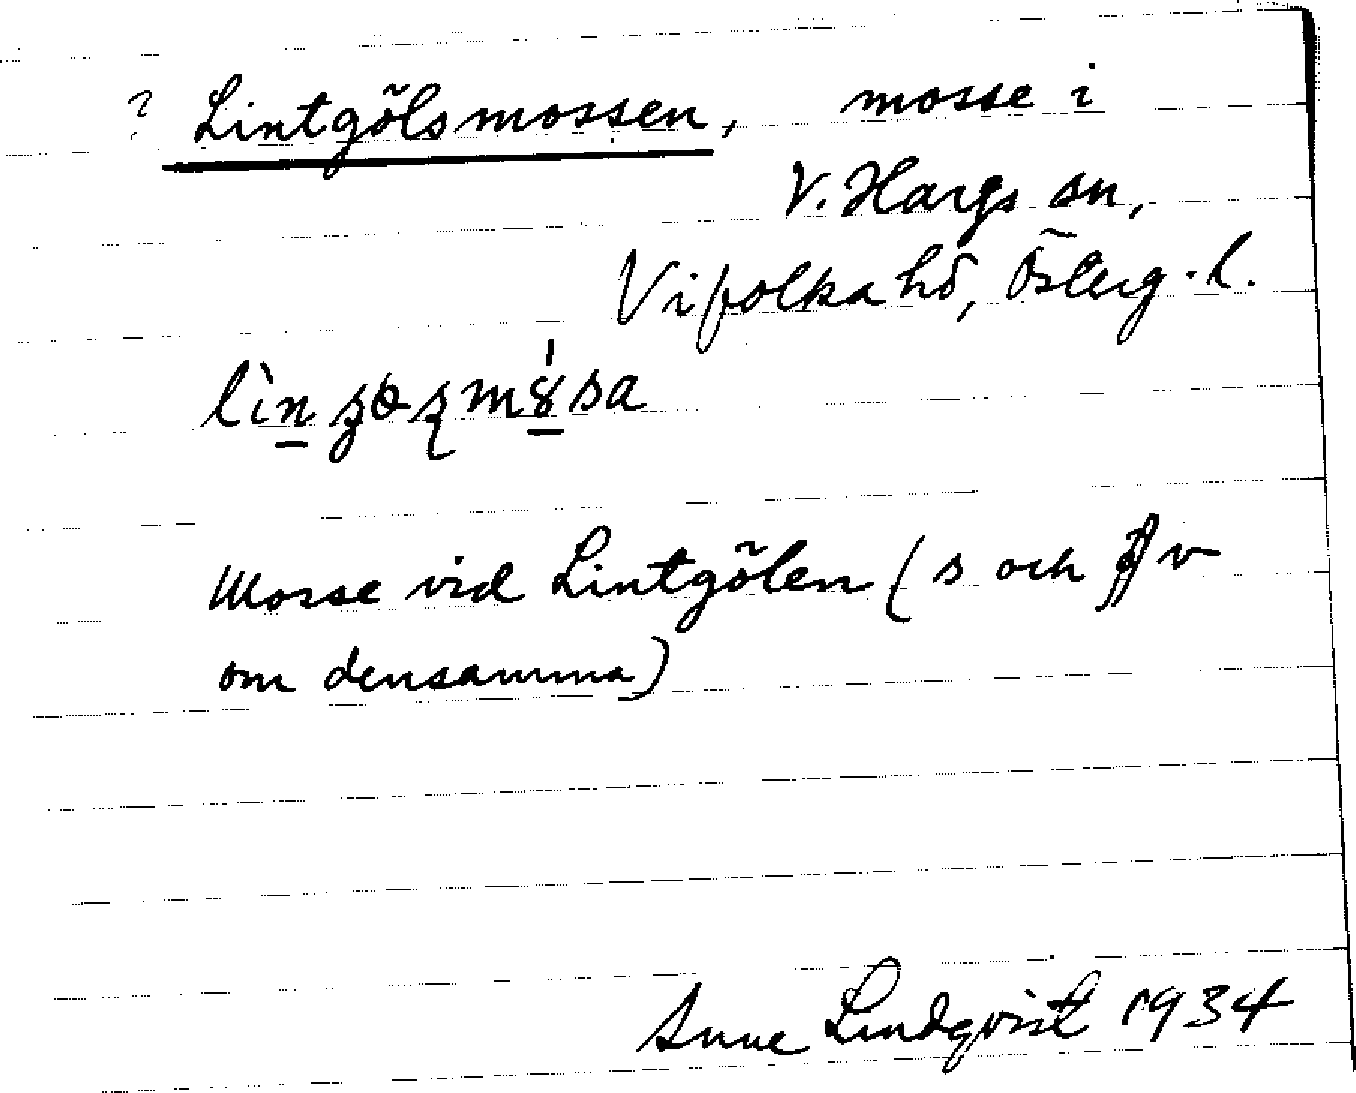 ? Lintgölsmossen, mosse i
V. Hargs sn,
Vifolka hd, Österg. l.
Mosse vid Lintgölen (s och v
om densamma)
Arne Lindqvist 1934